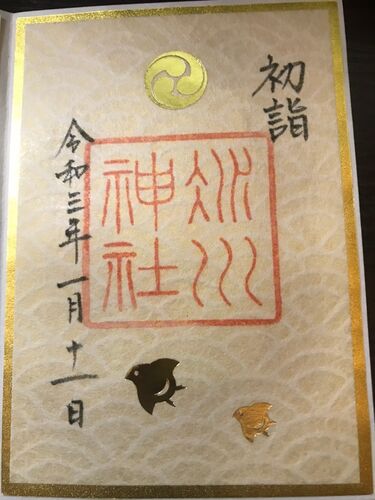 初詣
氷川
神社
令和三年一月十一日